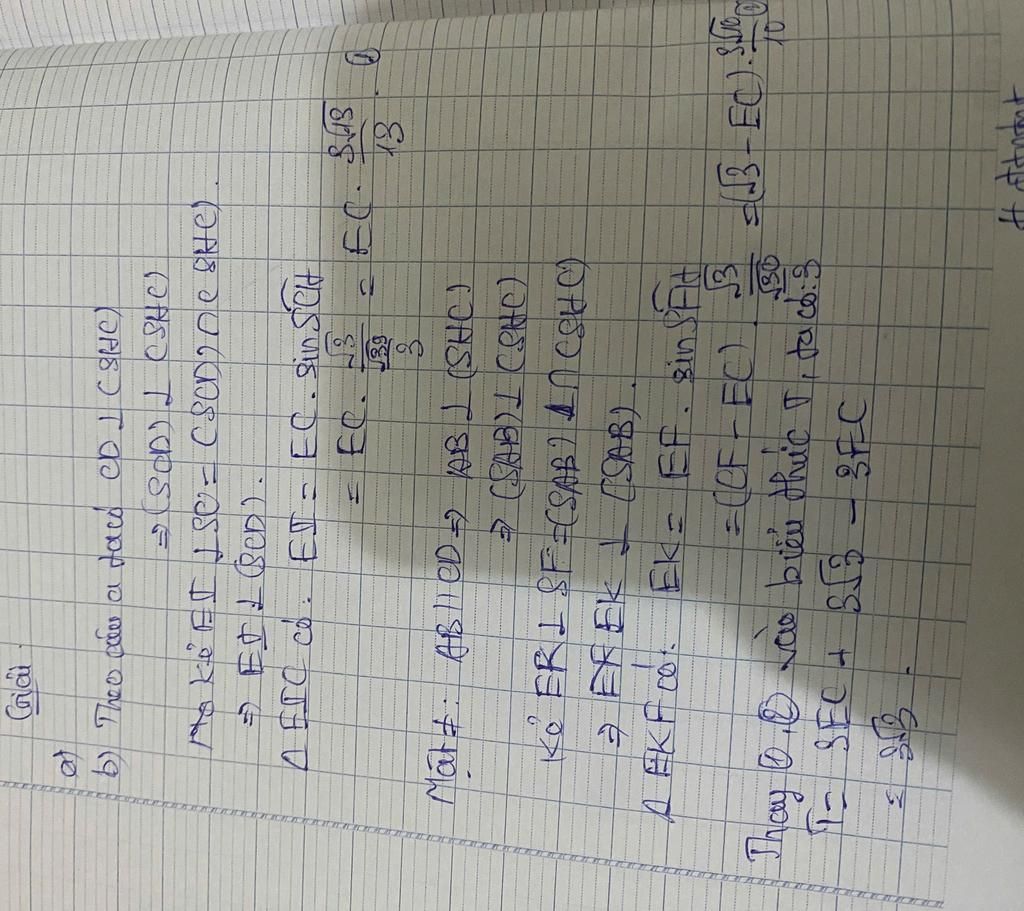 Giải.
a)
b) Theo câu a ta có CD ⊥ (SHC)
⇒ (SCD) ⊥ (SHC)
Mà kẻ EI ⊥ SC = (SCD) ∩ (SHC).
⇒ EI ⊥ (SCD).
Δ EIC có: EI = EC. sin SCH
= EC. √3/(√39/3) = EC. 3√13/13. ①
Mặt ≠: AB // CD ⇒ AB ⊥ (SHC)
⇒ (SAB) ⊥ (SHC)
Kẻ EK ⊥ SF = (SAB) ∩ (SHC)
⇒ EK ⊥ (SAB).
Δ EKF có: EK = EF. sin SFH
= (CF - EC). √3/√30 = (√3 - EC). 3√10/10 ②
Thay ①, ② vào biểu thức T, ta có:
T = 3EC + 3√3 - 3EC
= 3√3.